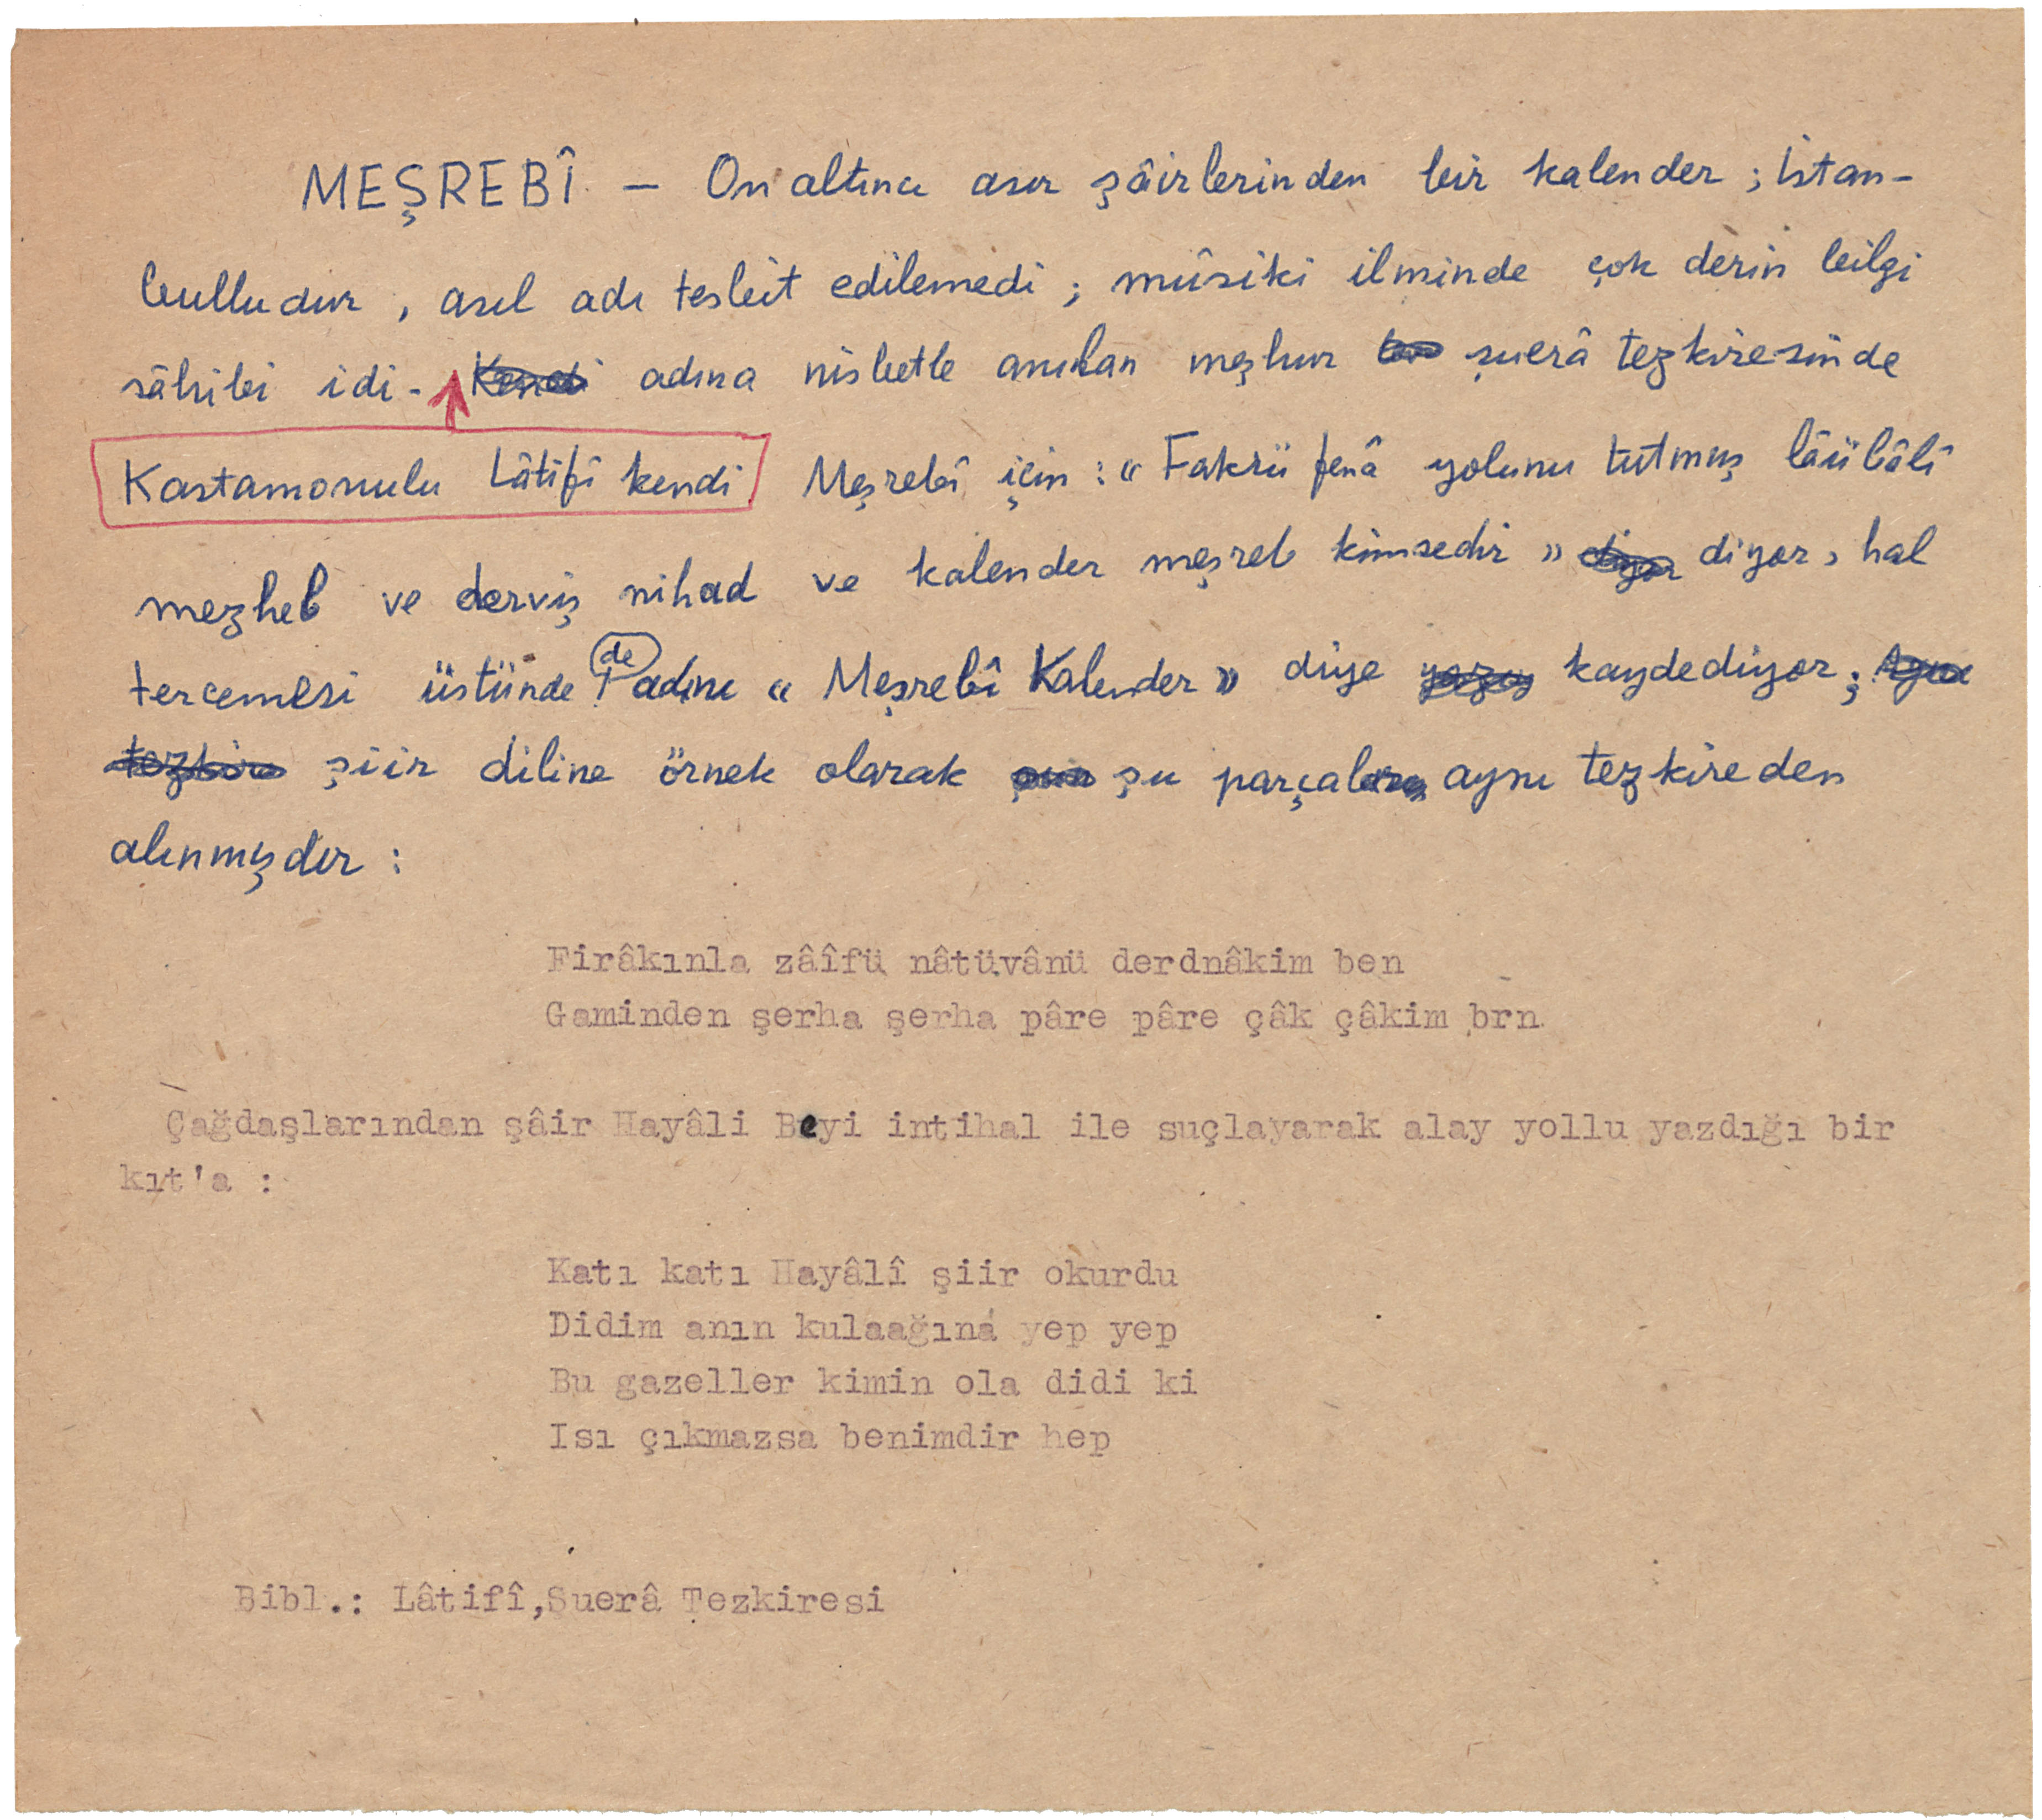 MEŞREBÎ — On altıncı asır şâirlerinden bir kalender ; İstan-
bulludur , asıl adı tesbit edilemedi ; mûsiki ilminde çok derin bilgi
sâhibi idi. Kendi adına nisbetle anılan meşhur şuerâ tezkiresinde
Kastamonulu Lâtifî kendi Meşrebî için : « Fakrü fenâ yolunu tutmuş lâübâlî
mezheb ve derviş nihad ve kalender meşreb kimsedir » diyor diyor, hal
tercemesi üstünde de adını « Meşrebî Kalender » diye kaydediyor ;
tezkire şiir diline örnek olarak şu parçalar aynı tezkireden
alınmışdır :
Firâkınla zâîfü nâtüvânü derdnâkim ben
Gaminden şerha şerha pâre pâre çâk çâkim brn
Çağdaşlarından şâir Hayâli Beyi intihal ile suçlayarak alay yollu yazdığı bir
kıt'a :
Katı katı Hayâlî şiir okurdu
Didim anın kulaağına yep yep
Bu gazeller kimin ola didi ki
Isı çıkmazsa benimdir hep
Bibl.: Lâtifî,Şuerâ Tezkiresi